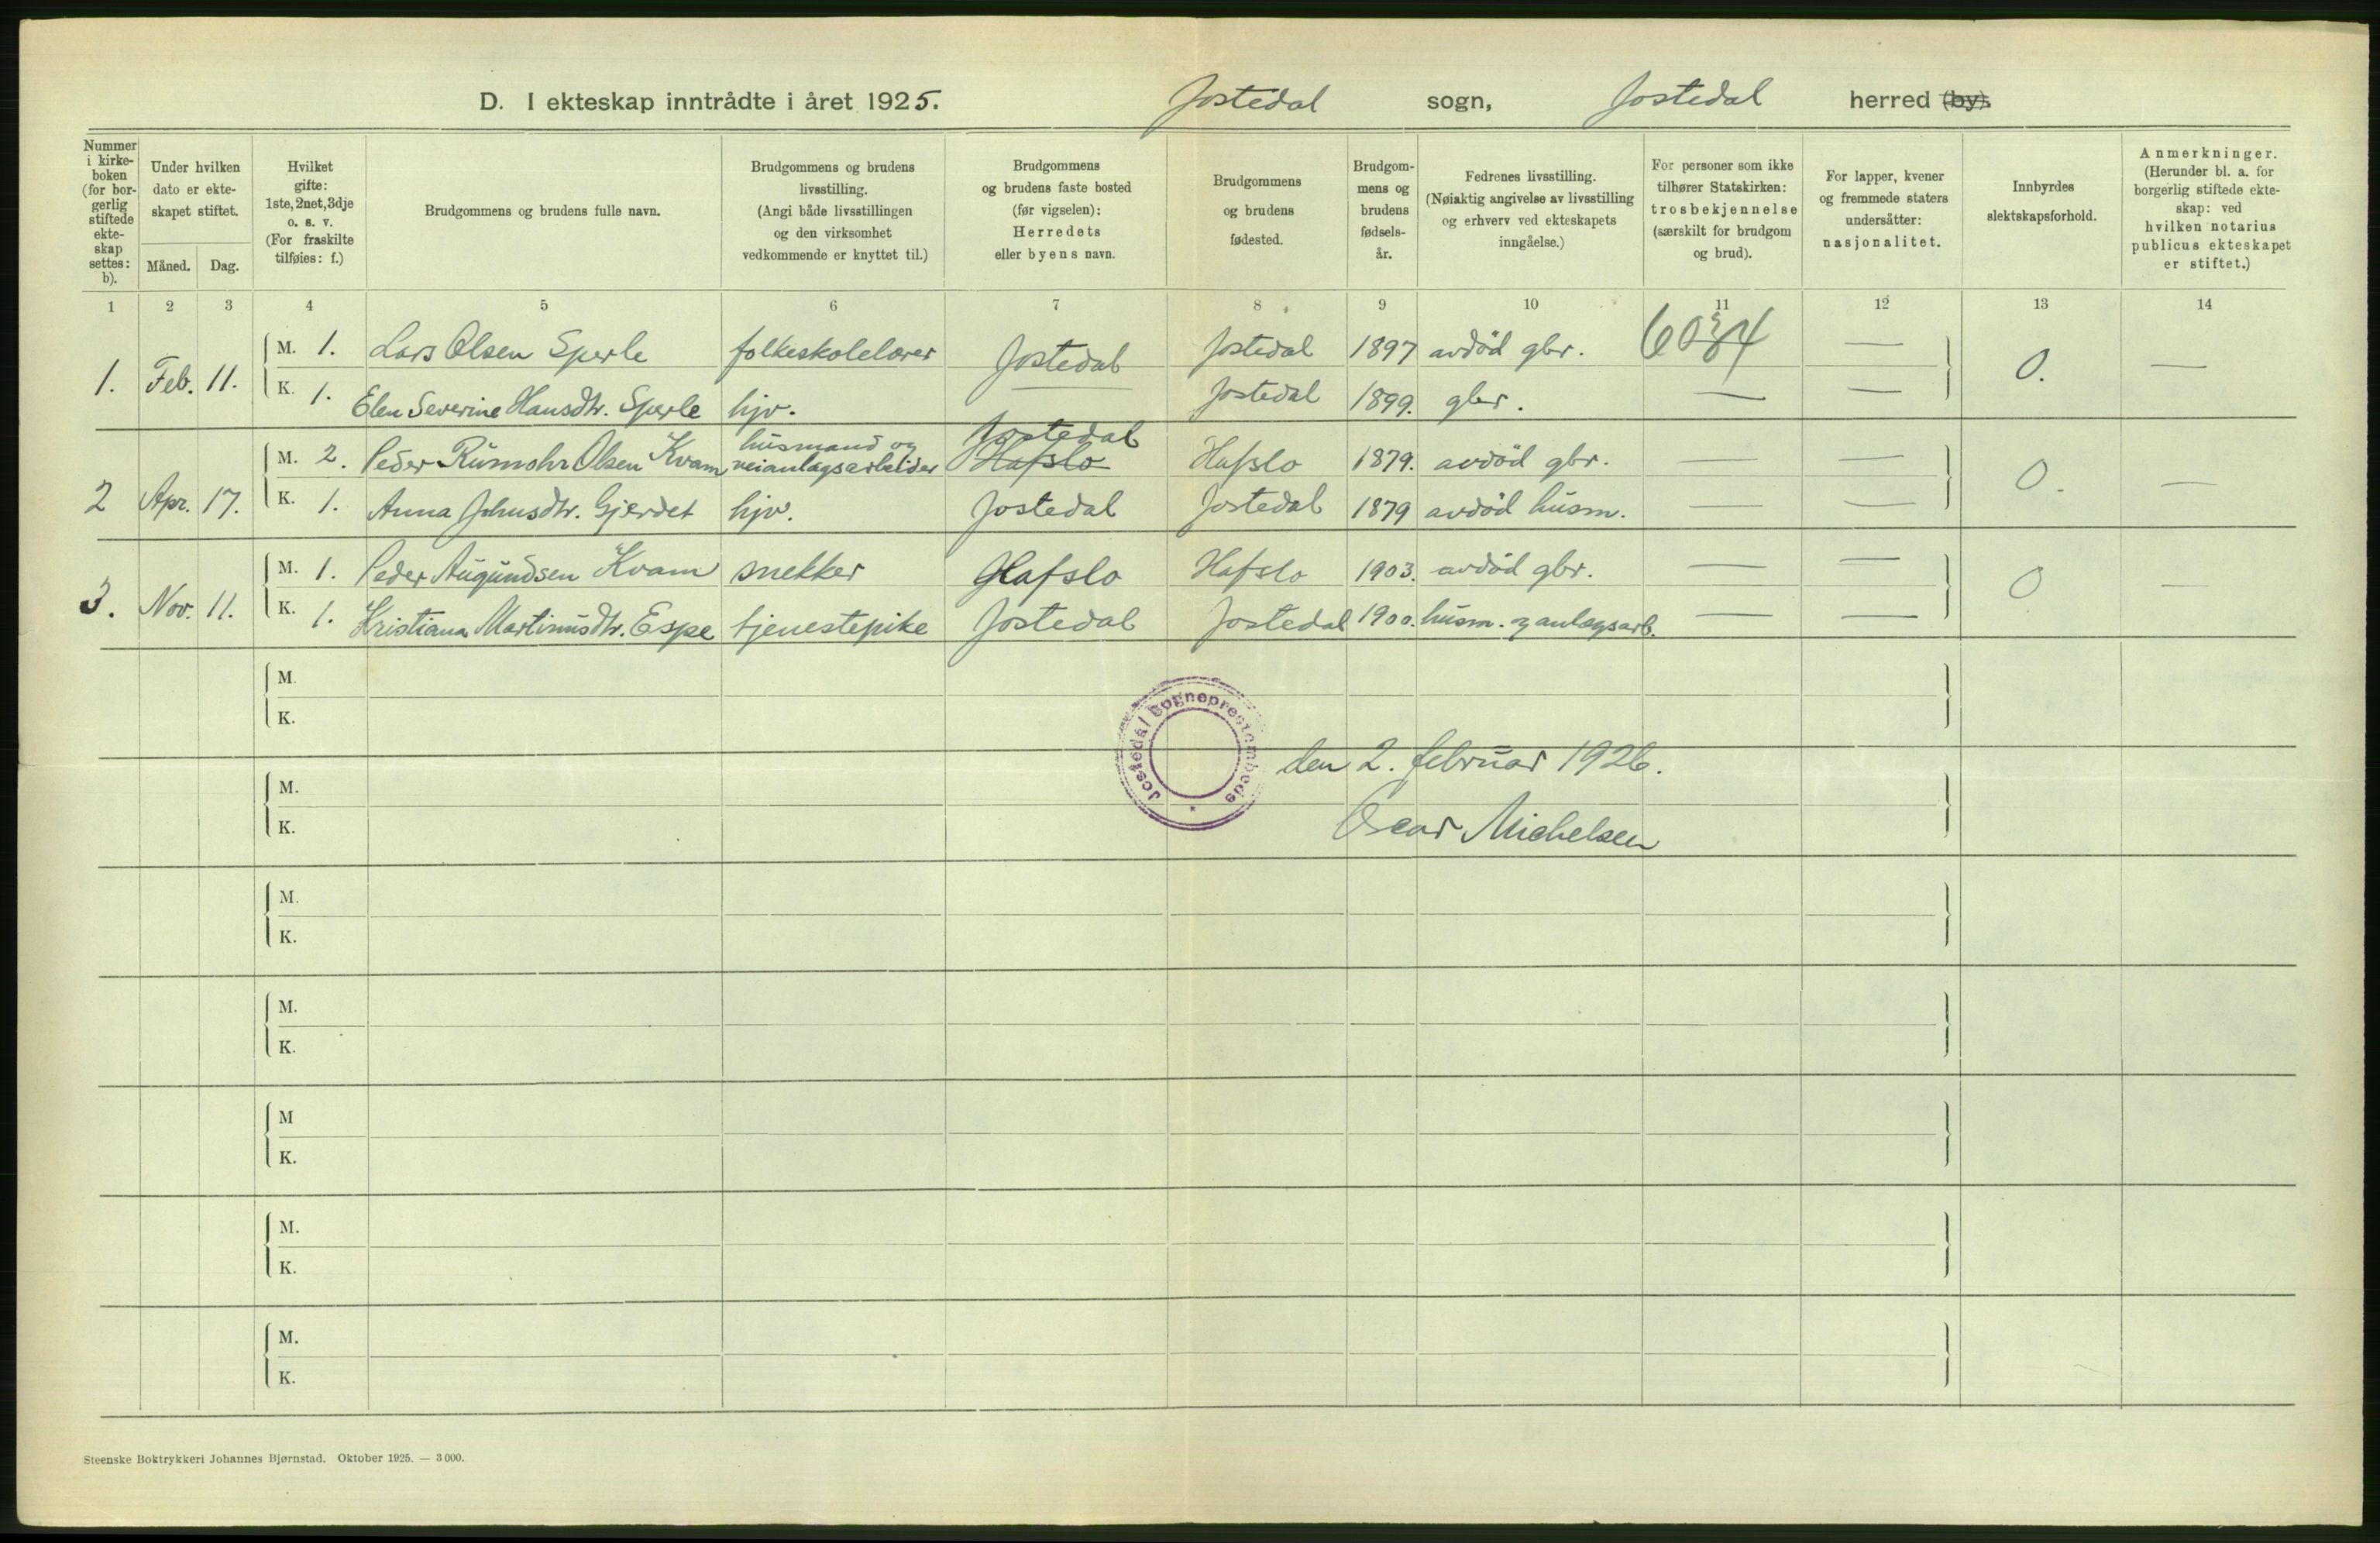 D. I ekteskap inntrådte i året 1925. Jostedal sogn, Jostedal herred (by).
Nummer i kirkeboken (for borgerlig stiftede ekteskap settes: b).
Under hvilken dato er ekteskapet stiftet.
Måned. Dag.
Hvilket gifte: 1ste, 2net, 3dje o. s. v. (For fraskilte tilføies: f.)
Brudgommens og brudens fulle navn.
Brudgommens og brudens livsstilling. (Angi både livsstillingen og den virksomhet vedkommende er knyttet til.)
Brudgommens og brudens faste bosted (før vigselen): Herredets eller byens navn.
Brudgommens og brudens fødested.
Brudgommens og brudens fødselsår.
Fedrenes livsstilling. (Nøiaktig angivelse av livsstilling og erhverv ved ekteskapets inngåelse.)
For personer som ikke tilhører Statskirken: trosbekjennelse (særskilt for brudgom og brud).
For lapper, kvener og fremmede staters undersåtter: nasjonalitet.
Innbyrdes slektskapsforhold.
Anmerkninger. (Herunder bl. a. for borgerlig stiftede ekteskap: ved hvilken notarius publicus ekteskapet er stiftet.)
1 2 3 4 5 6 7 8 9 10 11 12 13 14
1. Feb. 11. M. 1. Lars Olsen Sperle folkeskolelærer Jostedal Jostedal 1897 avdöd gbr. — 0. —
K. 1. Elen Severine Hansdtr. Sperle hjv. — Jostedal 1899. gbr. — —
2 Apr. 17. M. 2. Peder Rumohr Olsen Kvam husmand og veianlægsarbeider Jostedal Hafslo Hafslo 1879. avdöd gbr. — — 0. —
K. 1. Anna Johnsdtr. Gjerdet hjv. Jostedal Jostedal 1879 avdöd husm. — —
3. Nov. 11. M. 1. Peder Augundsen Kvam snekker Hafslo Hafslo 1903. avdöd gbr. — — 0 —
K. 1. Kristiana Martinusdtr. Espe tjenestepike Jostedal Jostedal 1900. husm. og anlægsarb. — —
M.
K.
Jostedal Sogneprestembede
den 2. februar 1926.
Oscar Michelsen
M.
K.
M.
K.
M.
K.
M
K.
M.
K.
M.
K.
Steenske Boktrykkeri Johannes Bjørnstad. Oktober 1925. — 3 000.